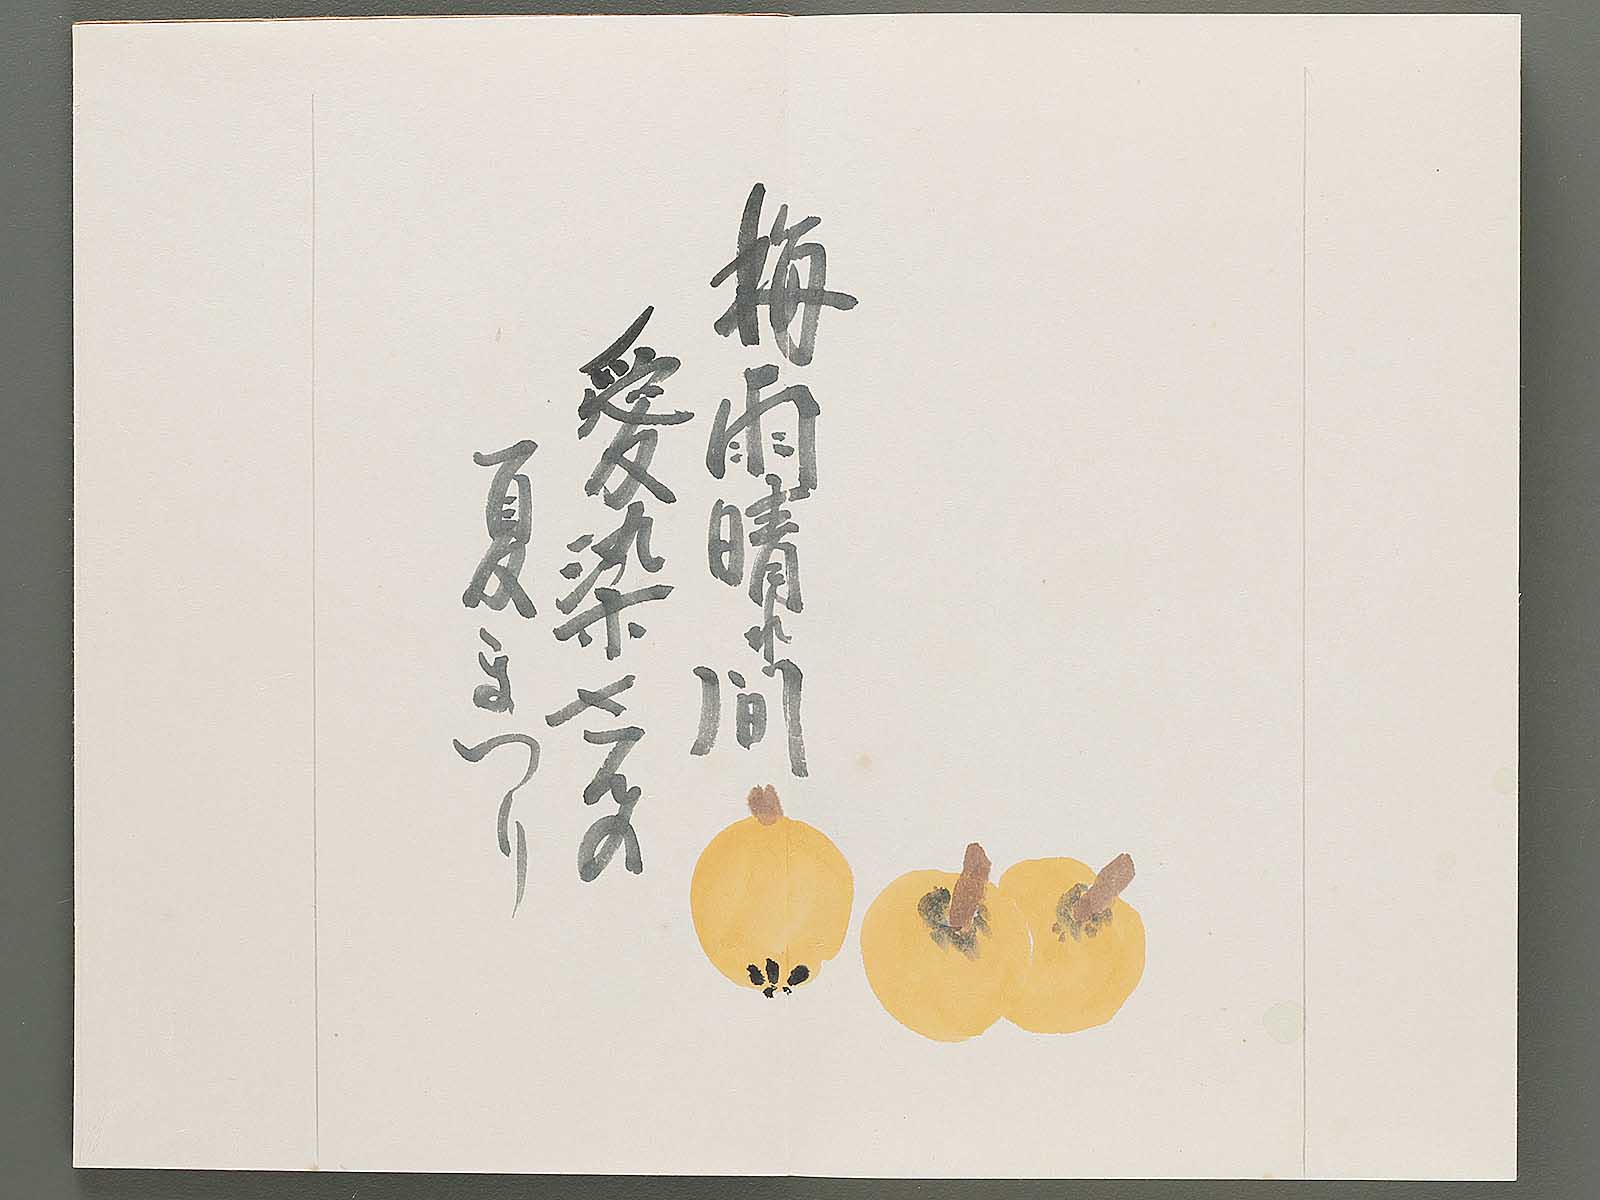 梅雨晴れ間
愛染さんの
夏まつり